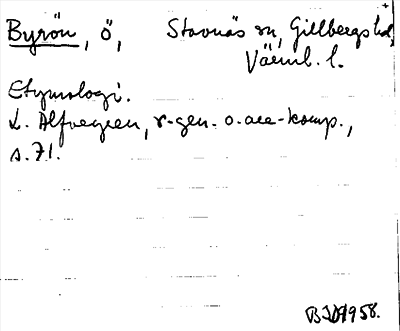 Byrön, ö, Stavnäs sn, Gillbergs hd,
Värml. l.
Etymologi.
L. Alfvegren, r-gen. o. ack-komp.,
s. 71.
1958.